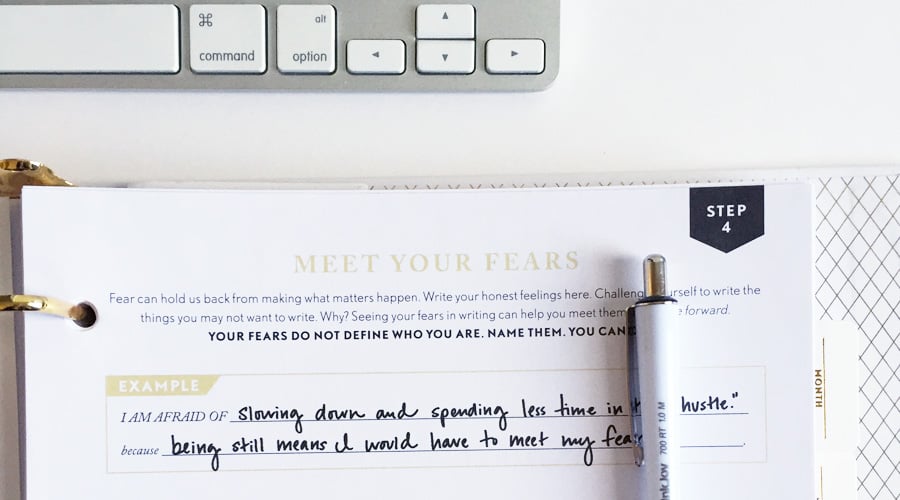 ⌘ alt
command option
STEP
4
MEET YOUR FEARS
Fear can hold us back from making what matters happen. Write your honest feelings here. to write the
things you may not want to write. Why? Seeing your fears in writing can help you meet them forward.
YOUR FEARS DO NOT DEFINE WHO YOU ARE. NAME THEM. YOU CAN
EXAMPLE
I AM AFRAID OF slowing down and spending less time in hustle."
because being still means I would have to meet my
MONTH
InkJoy 700 RT 1.0 M